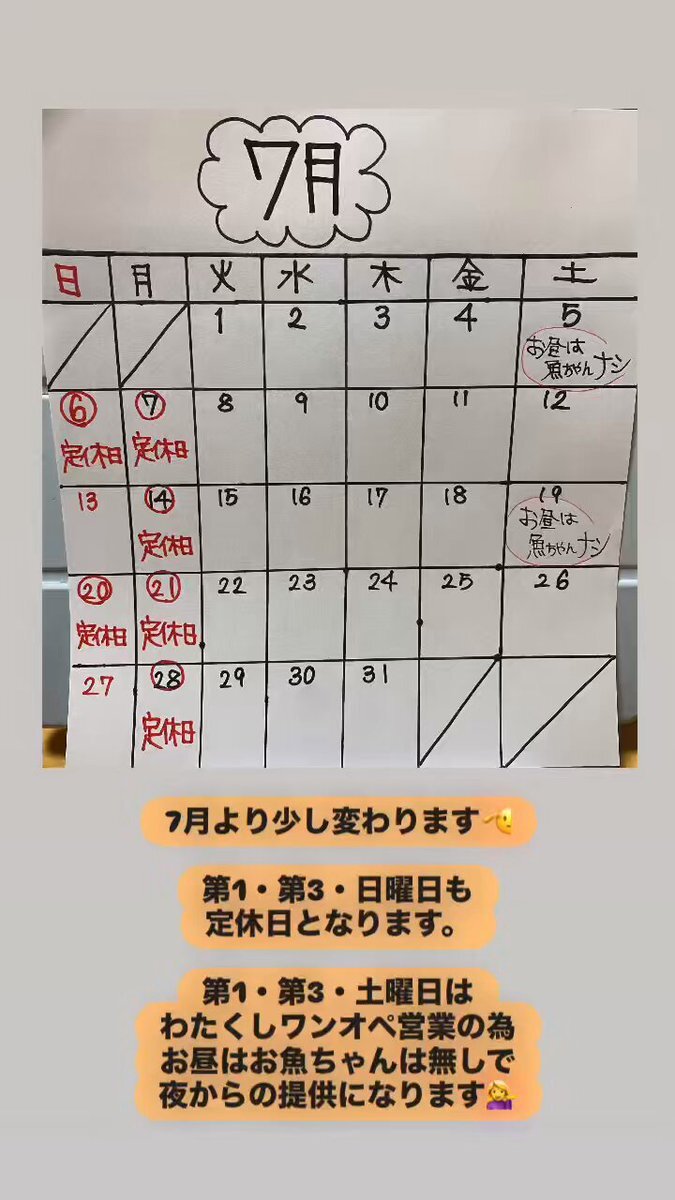 7月
日 月 火 水 木 金 土
1 2 3 4 5
お昼は
魚ちゃんナシ
6 7 8 9 10 11 12
定休日 定休日
13 14 15 16 17 18 19
定休日
お昼は
魚ちゃんナシ
20 21 22 23 24 25 26
定休日 定休日
27 28 29 30 31
定休日
7月より少し変わります🫡
第1・第3・日曜日も
定休日となります。
第1・第3・土曜日は
わたくしワンオペ営業の為
お昼はお魚ちゃんは無しで
夜からの提供になります💁‍♀️